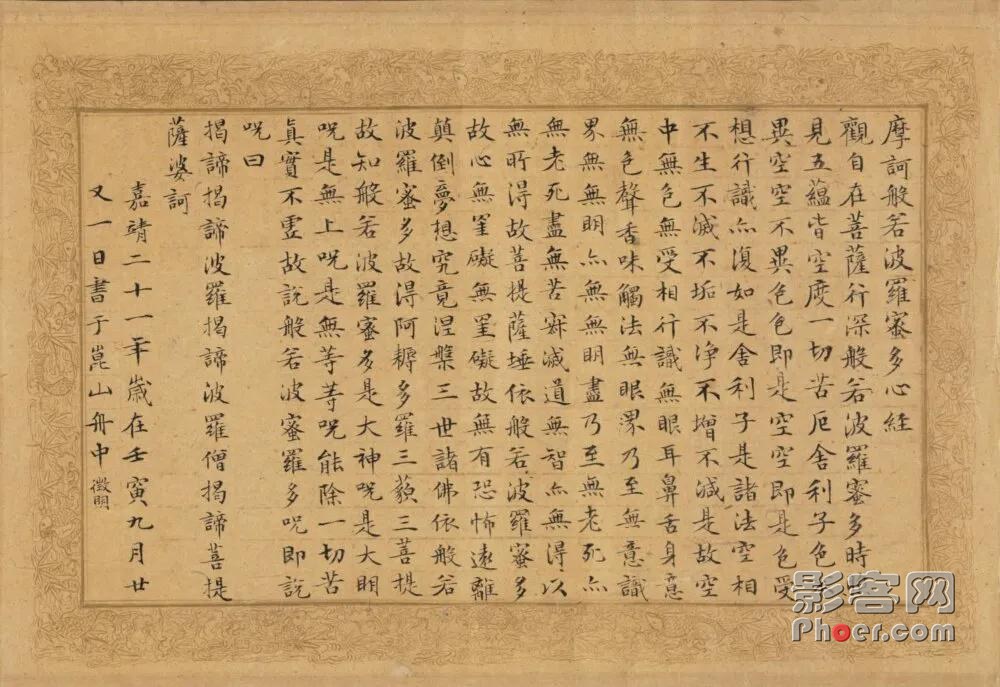 摩訶般若波羅蜜多心経
觀自在菩薩行深般若波羅蜜多時
見五蘊皆空度一切苦厄舍利子色
異空空不異色色即是空空即是色受
想行識亦復如是舍利子是諸法空相
不生不滅不垢不浄不增不減是故空
中無色無受相行識無眼耳鼻舌身意
無色聲香味觸法無眼界乃至無意識
界無無明亦無無明盡乃至無老死亦
無老死盡無苦寂滅道無智亦無得以
無所得故菩提薩埵依般若波羅蜜多
故心無罣礙無罣礙故無有恐怖遠離
顛倒夢想究竟涅槃三世諸佛依般若
波羅蜜多故得阿耨多羅三藐三菩提
故知般若波羅蜜多是大神呪是大明
呪是無上呪是無等等呪能除一切苦
真實不虛故說般若波蜜羅多呪即說
呪曰
揭諦揭諦波羅揭諦波羅僧揭諦菩提
薩婆訶
嘉靖二十一年歲在壬寅九月廿
又一日書于崑山舟中 徵明
影客网
Phoer.com